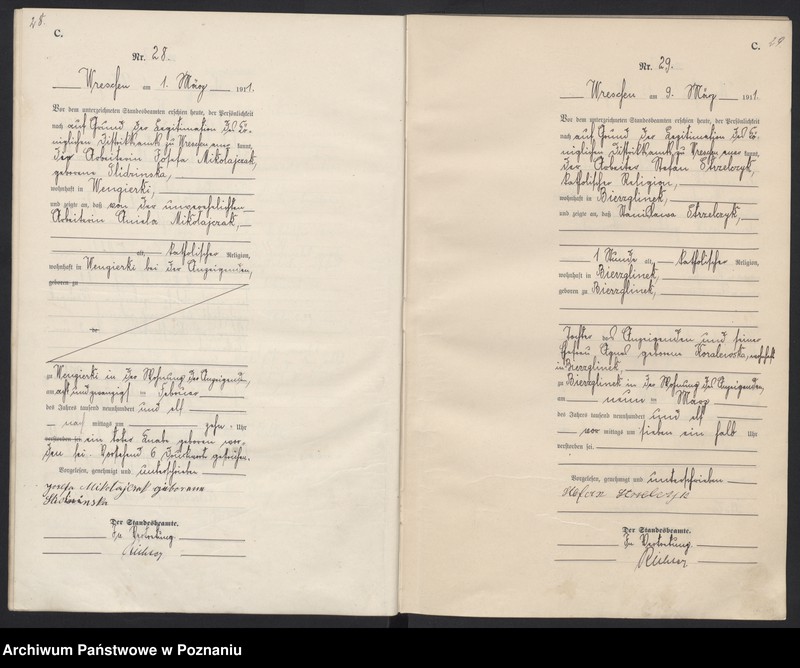 28.
C.
Nr. 28.
Wreschen am 1. März 1911.
Vor dem unterzeichneten Standesbeamten erschien heute, der Persönlichkeit
nach auf Grund der Legitimation des Kö-
niglichen Distriktsamts zu Wreschen kannt,
die Arbeiterin Josefa Mikolajczak,
geborene Slidzinska,
wohnhaft in Wengierki,
und zeigte an, daß von der unverehelichten
Arbeiterin Aniela Mikolajczak,
alt, katholischer Religion,
wohnhaft in Wengierki bei der Anzeigenden,
geboren zu
zu Wengierki in der Wohnung der Anzeigenden,
am achtundzwanzigsten Februar
des Jahres tausend neunhundert und elf
nachmittags um zehn Uhr
verstorben sei ein toter Knabe geboren wor-
den sei. Vorstehend 6 Druckworte gestrichen.
Vorgelesen, genehmigt und unterschrieben
Josefa Mikołajczak geborene
Der Standesbeamte.
In Vertretung.
29
C.
Nr. 29.
Wreschen am 9. März 1911.
Vor dem unterzeichneten Standesbeamten erschien heute, der Persönlichkeit
nach auf Grund der Legitimation des Kö-
niglichen Distriktsamts zu Wreschen kannt,
der Arbeiter Stefan Strzelczyk,
katholischer Religion,
wohnhaft in Bierzglinek,
und zeigte an, daß Stanislawa Strzelczyk,
1 Stunde alt, katholischer Religion,
wohnhaft in Bierzglinek,
geboren zu Bierzglinek,
Tochter des Anzeigenden und seiner
Ehefrau Agnes geborene Kowalewska, wohnhaft
in Bierzglinek,
zu Bierzglinek in der Wohnung des Anzeigenden,
am neunten März
des Jahres tausend neunhundert und elf
vormittags um sieben ein halb Uhr
verstorben sei.
Vorgelesen, genehmigt und unterschrieben
Stefan Strzelczyk
Der Standesbeamte.
In Vertretung.
Archiwum Państwowe w Poznaniu